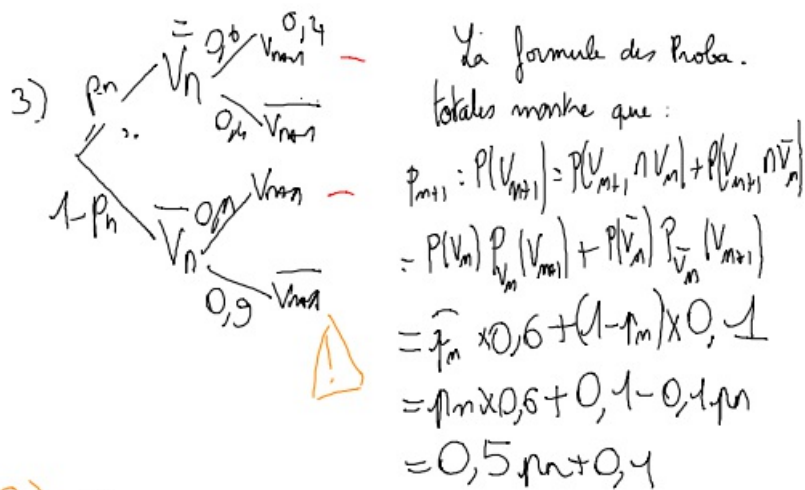 3)
pn
Vn
0,6
Vn+1
0,4
0,4
\overline{Vn+1}
1-pn
\overline{Vn}
0,1
Vn+1
0,9
\overline{Vn+1}
!
La formule des Proba.
totales montre que :
p_{n+1} = P(V_{n+1}) = P(V_{n+1} ∩ V_n) + P(V_{n+1} ∩ \overline{V_n})
= P(V_n) P_{V_n}(V_{n+1}) + P(\overline{V_n}) P_{\overline{V_n}}(V_{n+1})
= p_n × 0,6 + (1-p_n) × 0,1
= pn × 0,6 + 0,1 - 0,1 pn
= 0,5 pn + 0,1